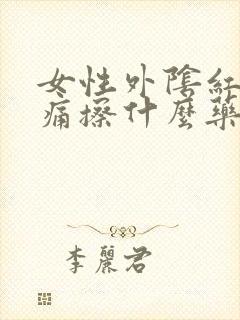 女性外陰紅
痛擦什麼藥
李麗君